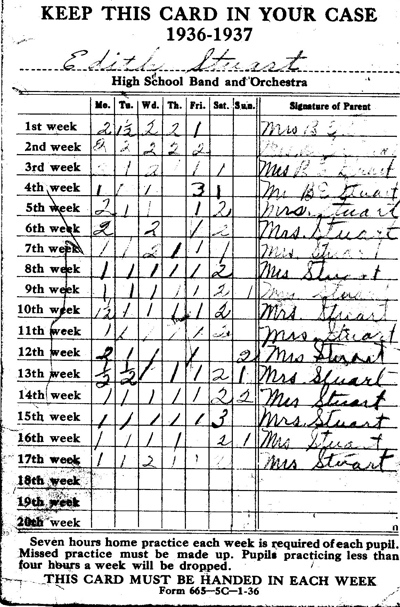 KEEP THIS CARD IN YOUR CASE
1936-1937
Edith Stuart
High School Band and Orchestra
Mo. Tu. Wd. Th. Fri. Sat. Sun. Signature of Parent
1st week 2 1½ 2 2 1 Mrs B
2nd week 2 2 2 2
3rd week 1 2 1 1 Mrs B E Stuart
4th week 1 1 1 3 1 B E Stuart
5th week 2 1 1 1 2 Mrs. Stuart
6th week 2 2 1 2 Mrs. Stuart
7th week 1 1 2 1 1 1 Mrs. Stuart
8th week 1 1 1 1 1 2 Mrs Stuart
9th week 1 1 1 1 1 2 1 Stuart
10th week 1 1 1 1 2 Mrs. Stuart
11th week 1 1 1 1 1 2 Mrs. Stuart
12th week 2 1 1 1 1 2 Mrs Stuart
13th week ½ ½ 1 1 1 2 1 Mrs Stuart
14th week 1 1 1 1 1 2 2 Mrs Stuart
15th week 1 1 1 1 1 3 Mrs. Stuart
16th week 1 1 1 1 2 1 Mrs Stuart
17th week 1 1 2 1 1 Mrs Stuart
18th week
19th week
20th week
Seven hours home practice each week is required of each pupil.
Missed practice must be made up. Pupils practicing less than
four hours a week will be dropped.
THIS CARD MUST BE HANDED IN EACH WEEK
Form 665—5C—1-36